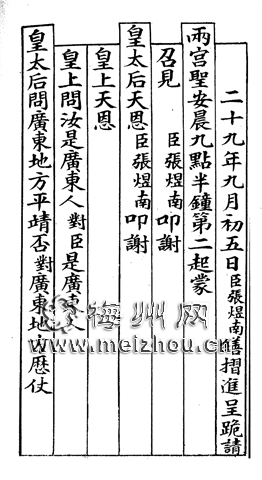 二十九年九月初五日臣張煜南膳摺進呈跪請
兩宮聖安晨九點半鐘第二起蒙
召見 臣張煜南叩謝
皇太后天恩臣張煜南叩謝
皇上天恩
皇上問汝是廣東人對臣是廣東人
皇太后問廣東地方平靖否對廣東地方歷仗
梅州网
www.meizhou.cn